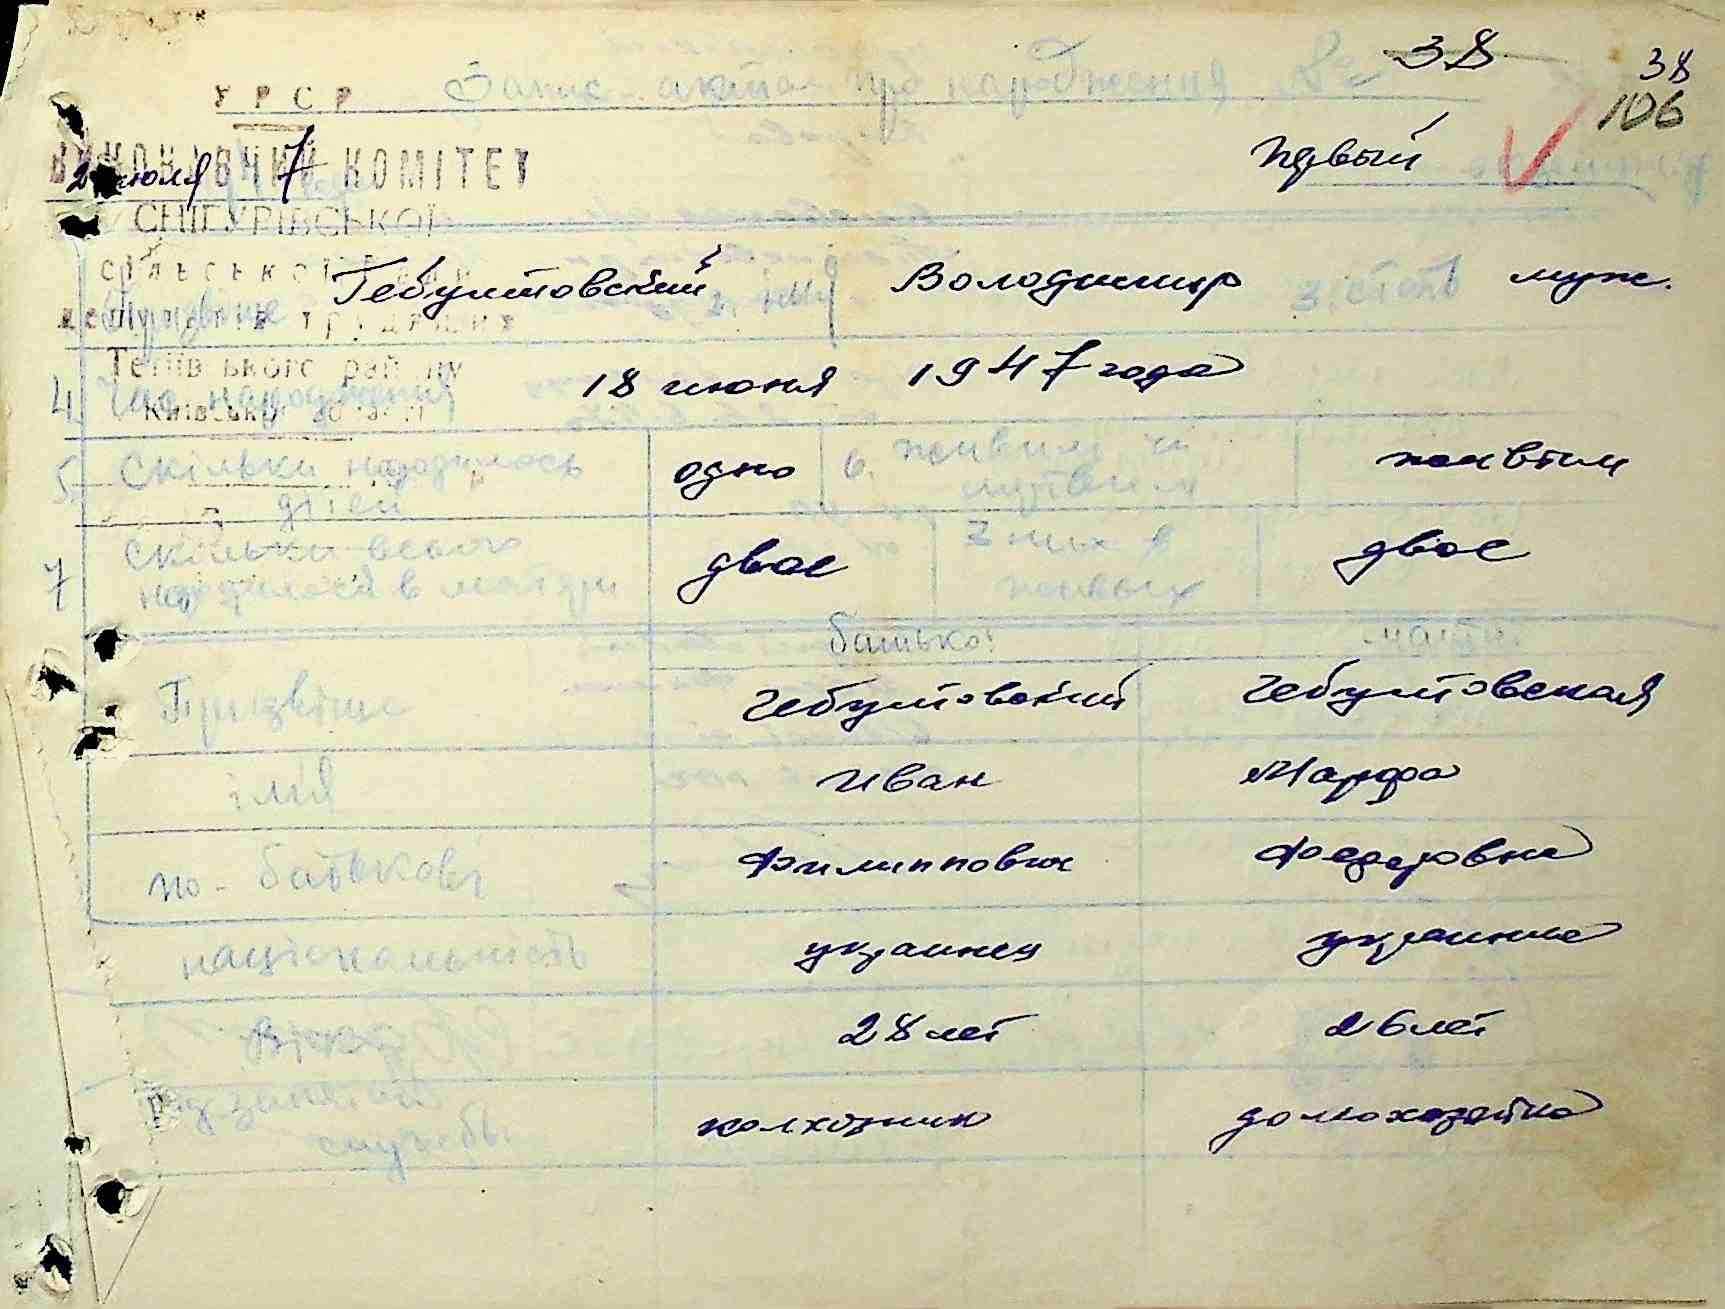 38
38
106
УРСР
Запис акта про народження №
первый
ВИКОНАВЧИЙ КОМІТЕТ
2 июля 7
СНІГУРІВСЬКОЇ
сільської Ради
Призвіще Гебултовский Володимир 3. стать муж.
депутатів трудящих
Тетіївського району
4 Час народження 18 июня 1947 года
Київської області
5 Скільки народилось дітей одно 6. живим чи мертвим живым
7 Скільки всього народилося в матери двое З них в живых двое
батько: мати:
Призвіще Гебултовский Гебултовская
ім'я Иван Марфа
по-батькові Филиппович Федоровна
національність украинец украинка
Вік 28 лет 26 лет
Рід занятий службы колхозник домохозяйка